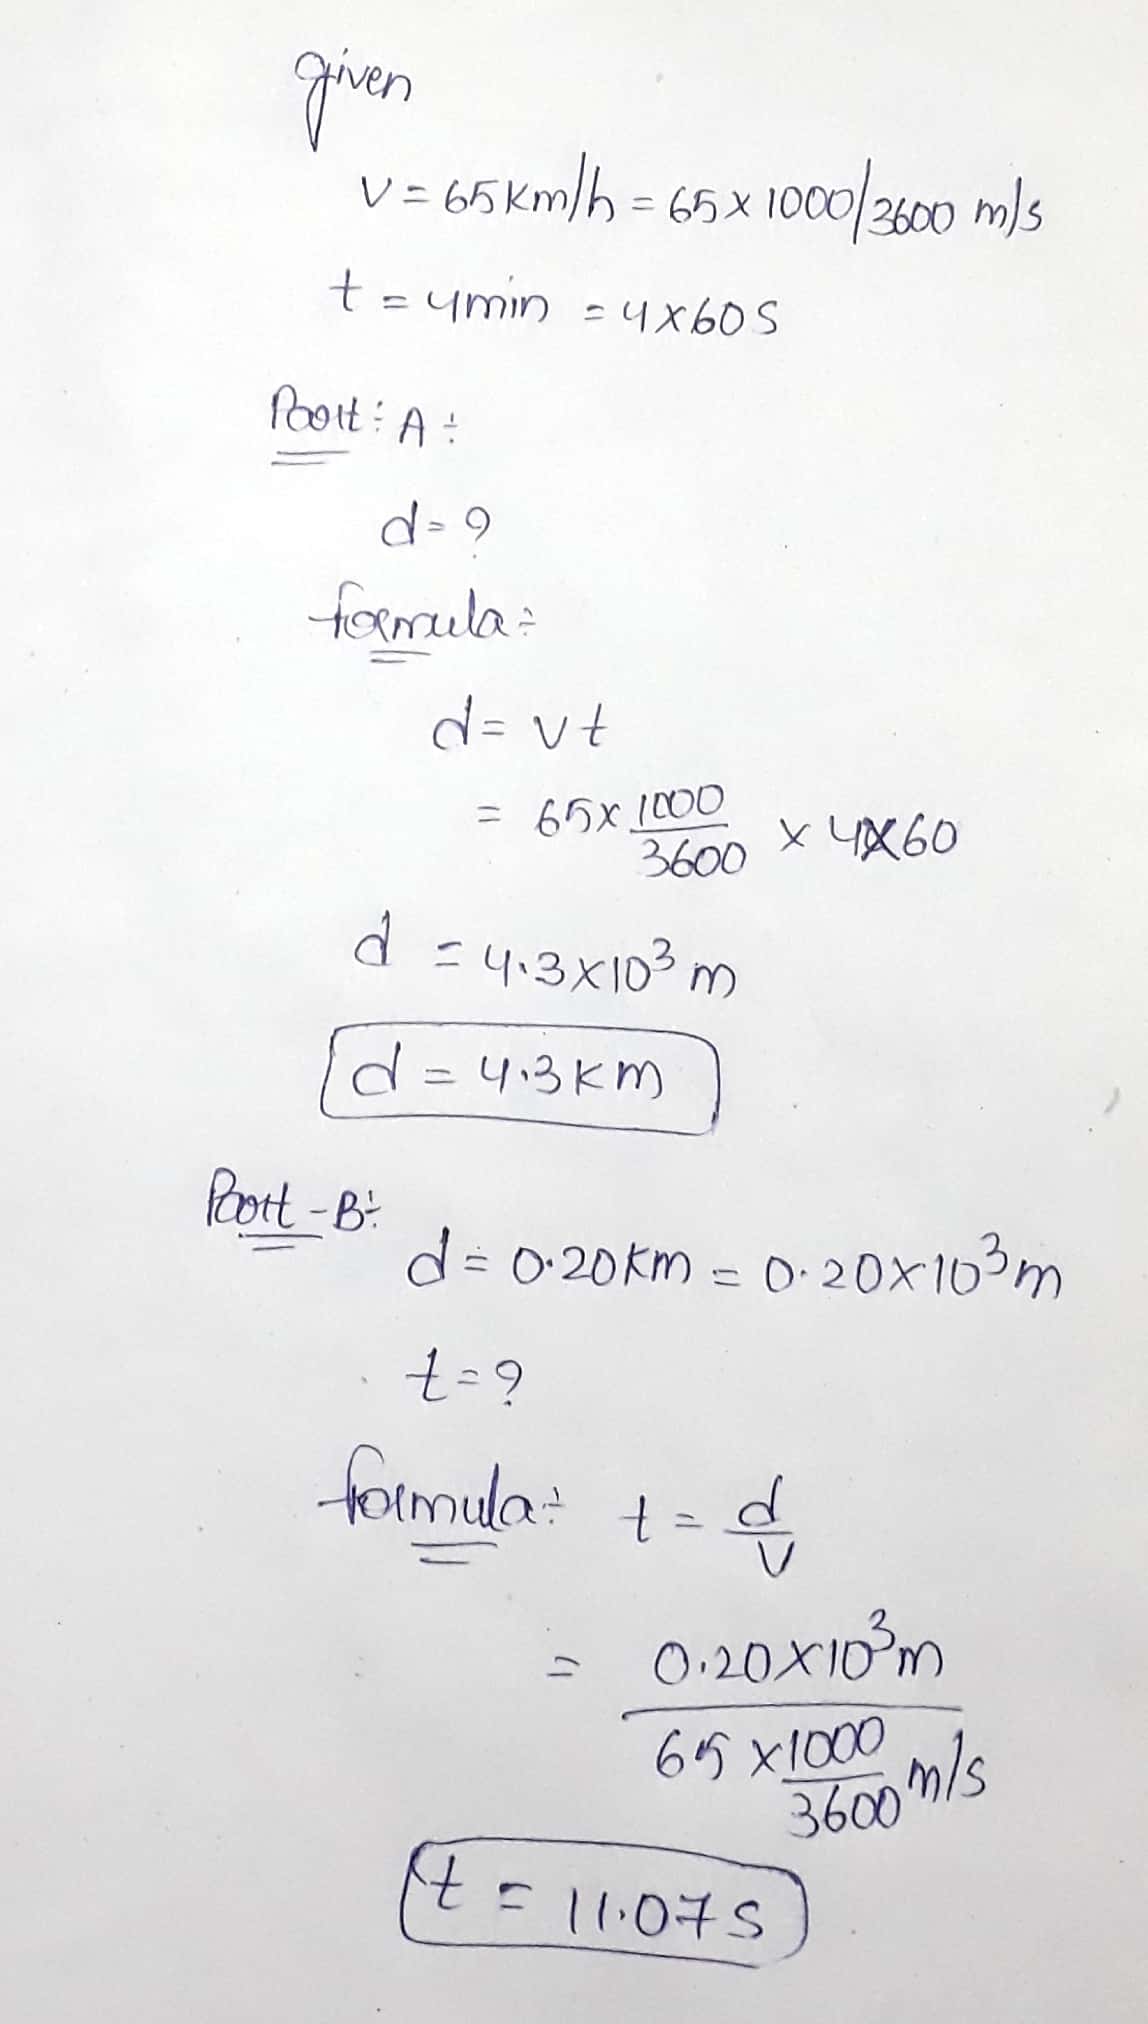 given
v = 65 km/h = 65 x 1000/3600 m/s
t = 4min = 4x60 s
Part: A:
d = ?
formula:
d = vt
= 65 x 1000/3600 x 4x60
d = 4.3 x 10³ m
d = 4.3 km
Part - B:
d = 0.20 km = 0.20 x 10³ m
t = ?
formula: t = d/v
= 0.20 x 10³ m
65 x 1000/3600 m/s
t = 11.07 s